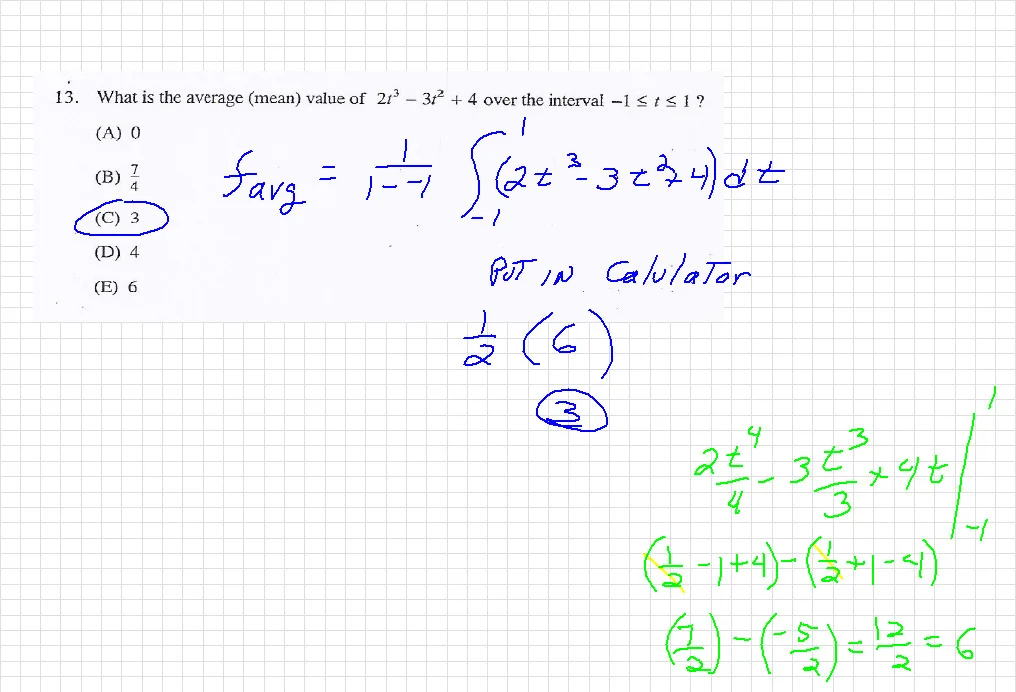 13. What is the average (mean) value of 2t³ − 3t² + 4 over the interval −1 ≤ t ≤ 1 ?
(A) 0
(B) 7/4
(C) 3
(D) 4
(E) 6
f avg = 1/(1 - -1) ∫₋₁¹ (2t³ - 3t² + 4) dt
PUT IN CalulaTor
1/2 (6)
3
2t⁴/4 - 3t³/3 + 4t |₋₁¹
(1/2 - 1 + 4) - (1/2 + 1 - 4)
(7/2) - (-5/2) = 12/2 = 6